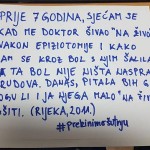 PRIJE 7 GODINA, SJEĆAM SE
KAD ME DOKTOR ŠIVAO "NA ŽIVO"
NAKON EPIZIOTOMIJE I KAKO
SAM SE KROZ BOL S NJIM ŠALILA
TA BOL NIJE NIŠTA NASPRAM
TRUDOVA. DANAS, PITALA BIH GA
MOGU LI I JA NJEGA MALO "NA ŽIVO"
ŠITI. (RIJEKA, 2011.)
#PrekinimoŠutnju